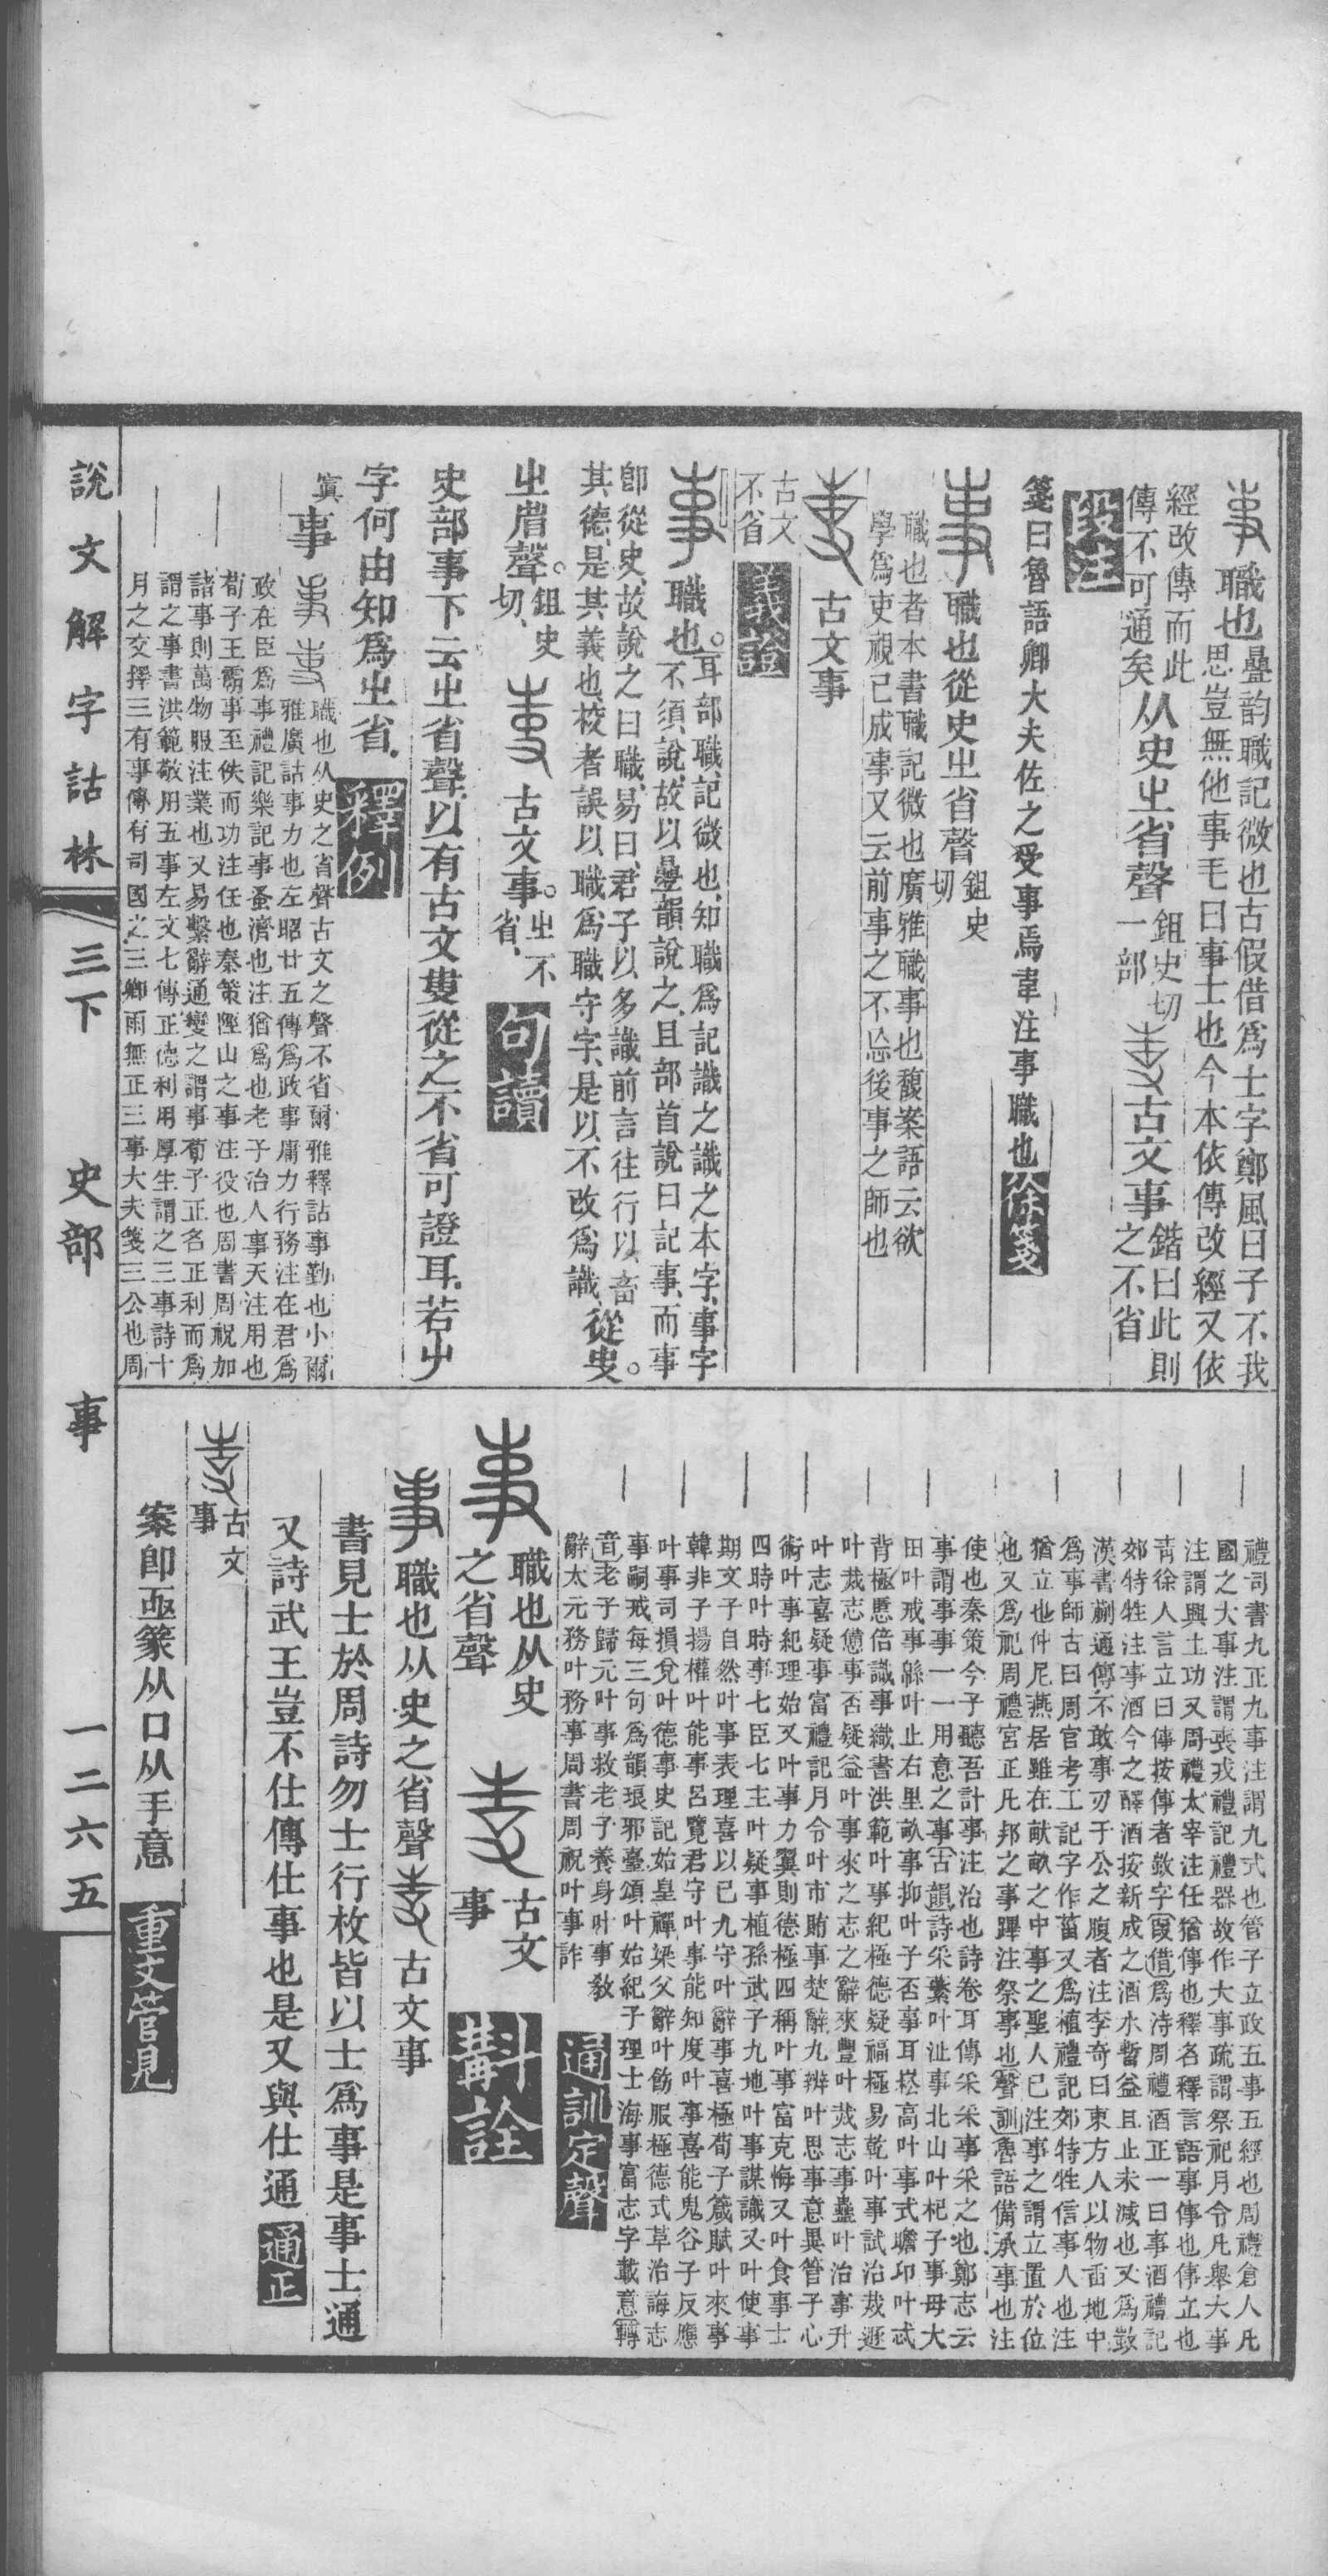 職也疊韵職記微也古假借爲士字鄭風曰子不我
思豈無他事毛曰事士也今本依傳改經又依
經改傳而此
傳不可通矣
从史㞢省聲
鉏史切
一部
古文事
鍇曰此則
之不省
段注
箋曰魯語卿大夫佐之受事焉韋注事職也
徐箋
職也從史㞢省聲
鉏史
切
職也者本書職記微也廣雅職事也馥案語云欲
學爲吏視已成事又云前事之不忘後事之師也
古文事
古文
不省
義證
職也。
耳部職、記微也、知職爲記識之識之本字、事字
不須說、故以疊韻說之、且部首說曰記事、而事
卽從史、故說之曰職、易曰、君子以多識前言往行以畜
其德、是其義也、校者誤以職爲職守字、是以不改爲識、
從史。
㞢省聲。
鉏史
切、
古文事。
㞢不
省、
句讀
史部事下云㞢省聲、以有古文㕝從之不省可證耳、若屮
字何由知爲㞢省、
釋例
事
職也从史之省聲古文之聲不省爾雅釋詁事勤也小爾
雅廣詁事力也左昭廿五傳爲政事庸力行務注在君爲
政在臣爲事禮記樂記事蚤濟也注猶爲也老子治人事天注用也
荀子王霸事至佚而功注任也秦策陘山之事注役也周書周祝加
諸事則萬物服注業也又易繫辭通變之謂事荀子正名正利而爲
謂之事書洪範敬用五事左文七傳正德利用厚生謂之三事詩十
月之交擇三有事傳有司國之三卿雨無正三事大夫箋三公也周
禮司書九正九事注謂九式也管子立政五事五經也周禮倉人凡
國之大事注謂喪戎禮記禮器故作大事疏謂祭祀月令凡舉大事
注謂興土功又周禮太宰注任猶傳也釋名釋言語事傳也傳立也
靑徐人言立曰傳按傳者敼字叚借爲洔周禮酒正一曰事酒禮記
郊特牲注事酒今之醳酒按新成之酒水暫益且止未減也又爲敼
漢書蒯通傳不敢事刃于公之腹者注李奇曰東方人以物臿地中
爲事師古曰周官考工記字作菑又爲植禮記郊特牲信事人也注
猶立也仲尼燕居雖在畎畝之中事之聖人已注事之謂立置於位
也又爲祀周禮宮正凡邦之事蹕注祭事也聲訓魯語備承事也注
使也秦策今子聽吾計事注治也詩卷耳傳采采事采之也鄭志云
事謂事事一一用意之事古韻詩采蘩叶沚事北山叶杞子事母大
田叶戒事緜叶止右里畝事抑叶子否事耳崧高叶事式瞻卬叶忒
背極慝倍識事織書洪範叶事紀極德疑福極易乾叶事試治災遯
叶災志憊事否疑益叶事來之志之辭來豐叶災志事蠱叶治事升
叶志喜疑事富禮記月令叶市賄事楚辭九辨叶思事意異管子心
術叶事紀理始又叶事力翼則德極四稱叶事富克悔又叶食事士
四時叶時事七臣七主叶疑事植孫武子九地叶事謀識又叶使事
期文子自然叶事表理喜以已九守叶辭事喜極荀子箴賦叶來事
韓非子揚權叶能事呂覽君守叶事能知度叶事喜能鬼谷子反應
叶事司損兌叶德事史記始皇禪梁父辭叶飭服極德式草治誨志
事嗣戒每三句爲韻琅邪臺頌叶始紀子理士海事富志字載意轉
音老子歸元叶事救老子養身叶事敎
辭太元務叶務事周書周祝叶事詐
通訓定聲
職也从史
之省聲
古文
事
斠詮
職也从史之省聲
古文事
書見士於周詩勿士行枚皆以士爲事是事士通
又詩武王豈不仕傳仕事也是又與仕通
通正
古文
事
案卽亟篆从口从手意
重文管見
說文解字詁林
三下
史部
事
一二六五